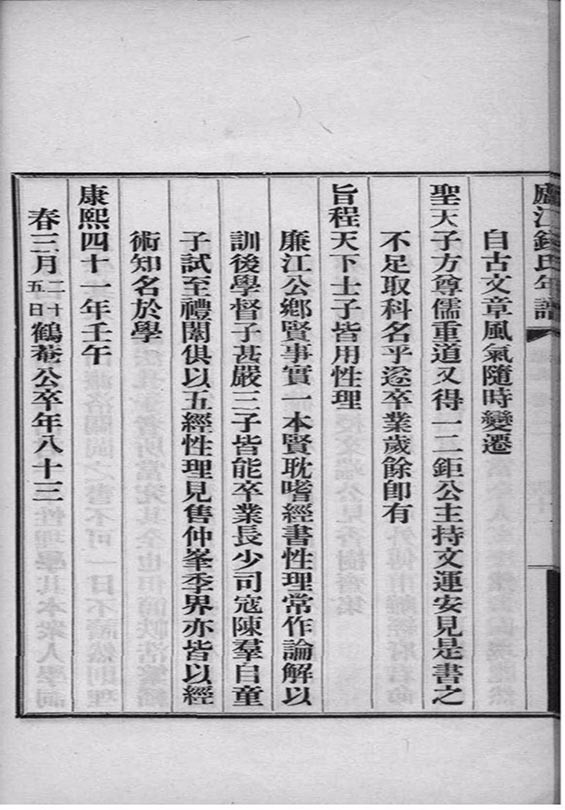 廬江錢氏年譜
自古文章風氣隨時變遷
聖天子方尊儒重道又得一二鉅公主持文運安見是書之
不足取科名乎遂卒業歲餘卽有
旨程天下士子皆用性理
廉江公鄉賢事實一本賢耽嗜經書性理常作論解以
訓後學督子甚嚴三子皆能卒業長少司寇陳羣自童
子試至禮闈俱以五經性理見售仲峯季界亦皆以經
術知名於學
康熙四十一年壬午
春三月二十五日鶴菴公卒年八十三